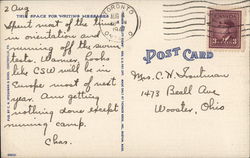 2 Aug
THIS SPACE FOR WRITING MESSAGES
Spent most of the time
in orientation and
running off the swim
tests. Warmer, looks
like CSW will be in
Europe most of next
year. Am getting
nothing done except
running camp.
Chas.
TORONTO
AUG
POST CARD
CANADA
3 3
Mrs. C. H. Troutman
1473 Beall Ave
Wooster, Ohio